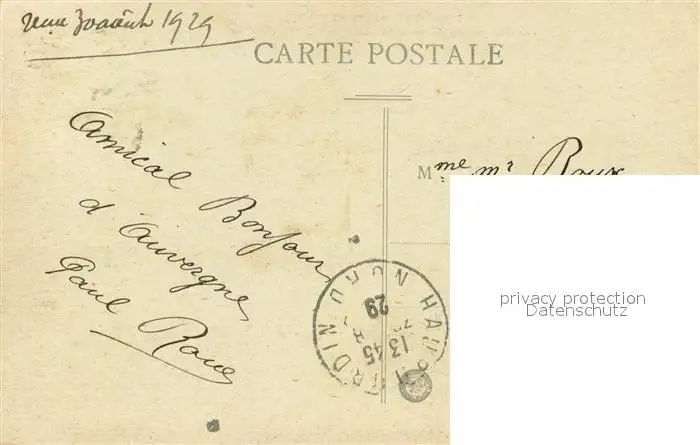 30 août 1929
CARTE POSTALE
Amical Bonjour
d'Auvergne
Paul Roux
Mme Mr Roux
HAU
NORD
13 45
29
privacy protection
Datenschutz